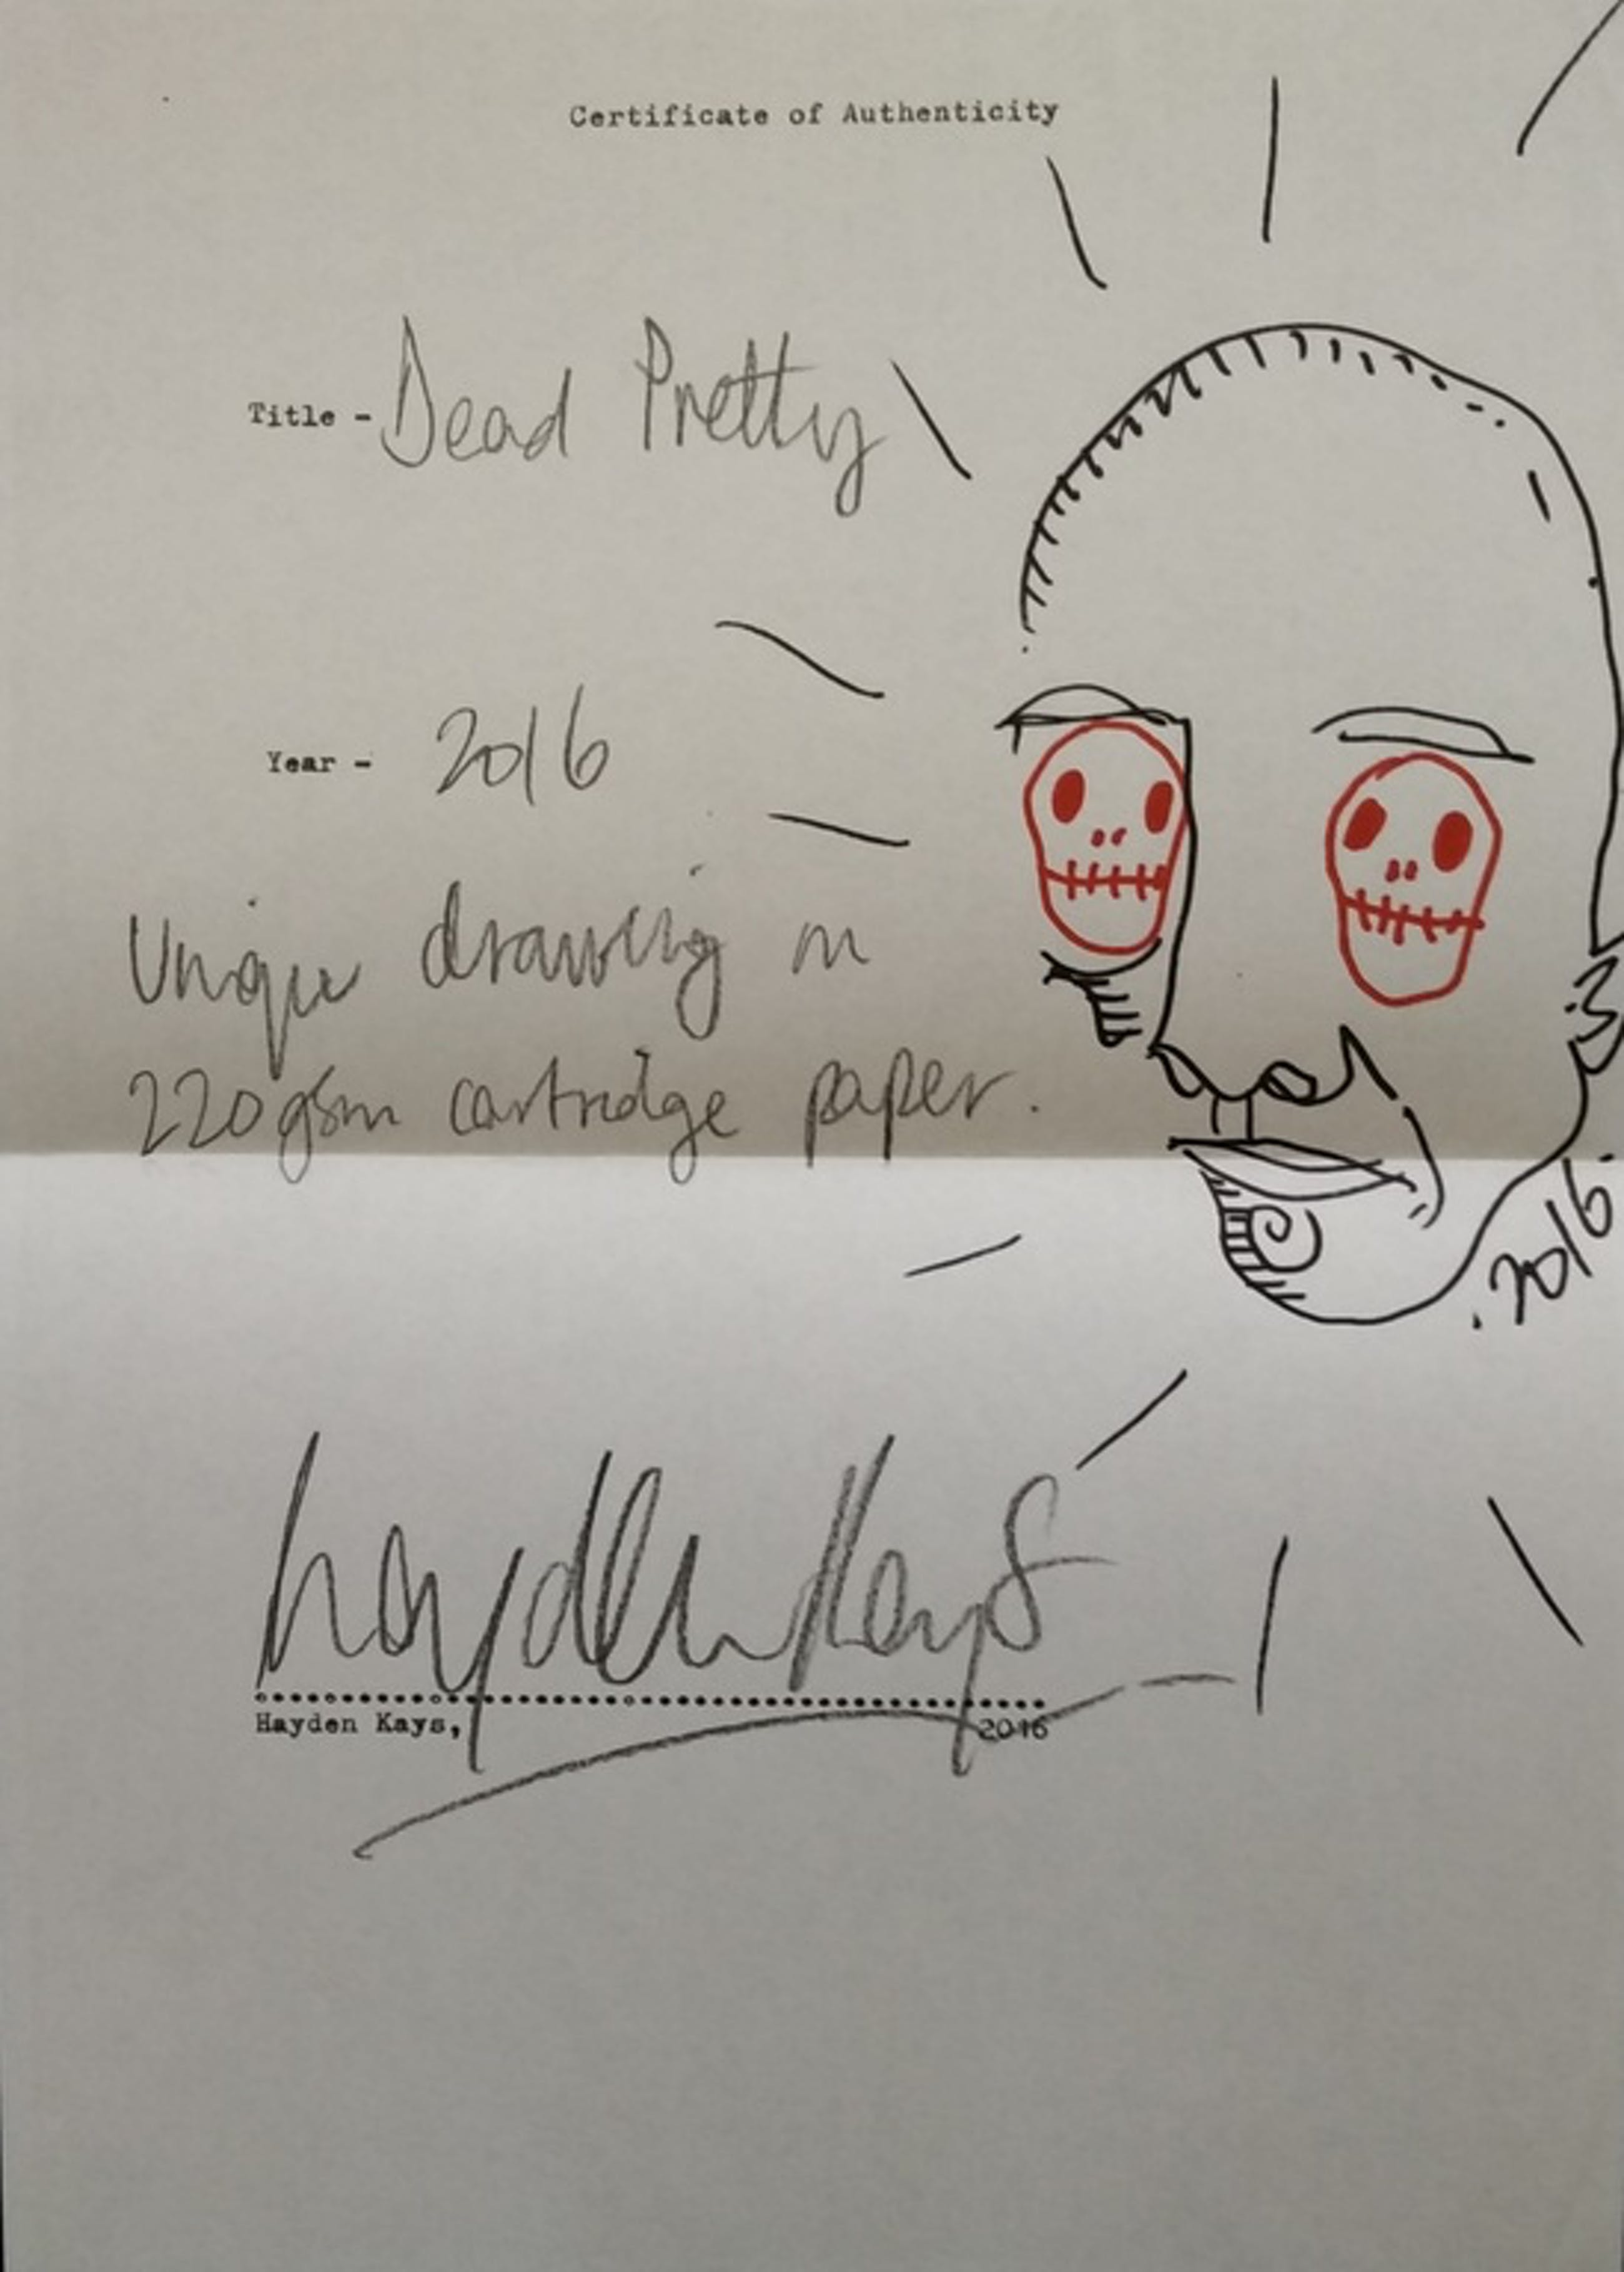 Certificate of Authenticity
Title - Dead Pretty
Year - 2016
Unique drawing on
220gsm cartridge paper.
.2016.
hayden Kays
Hayden Kays, 2016